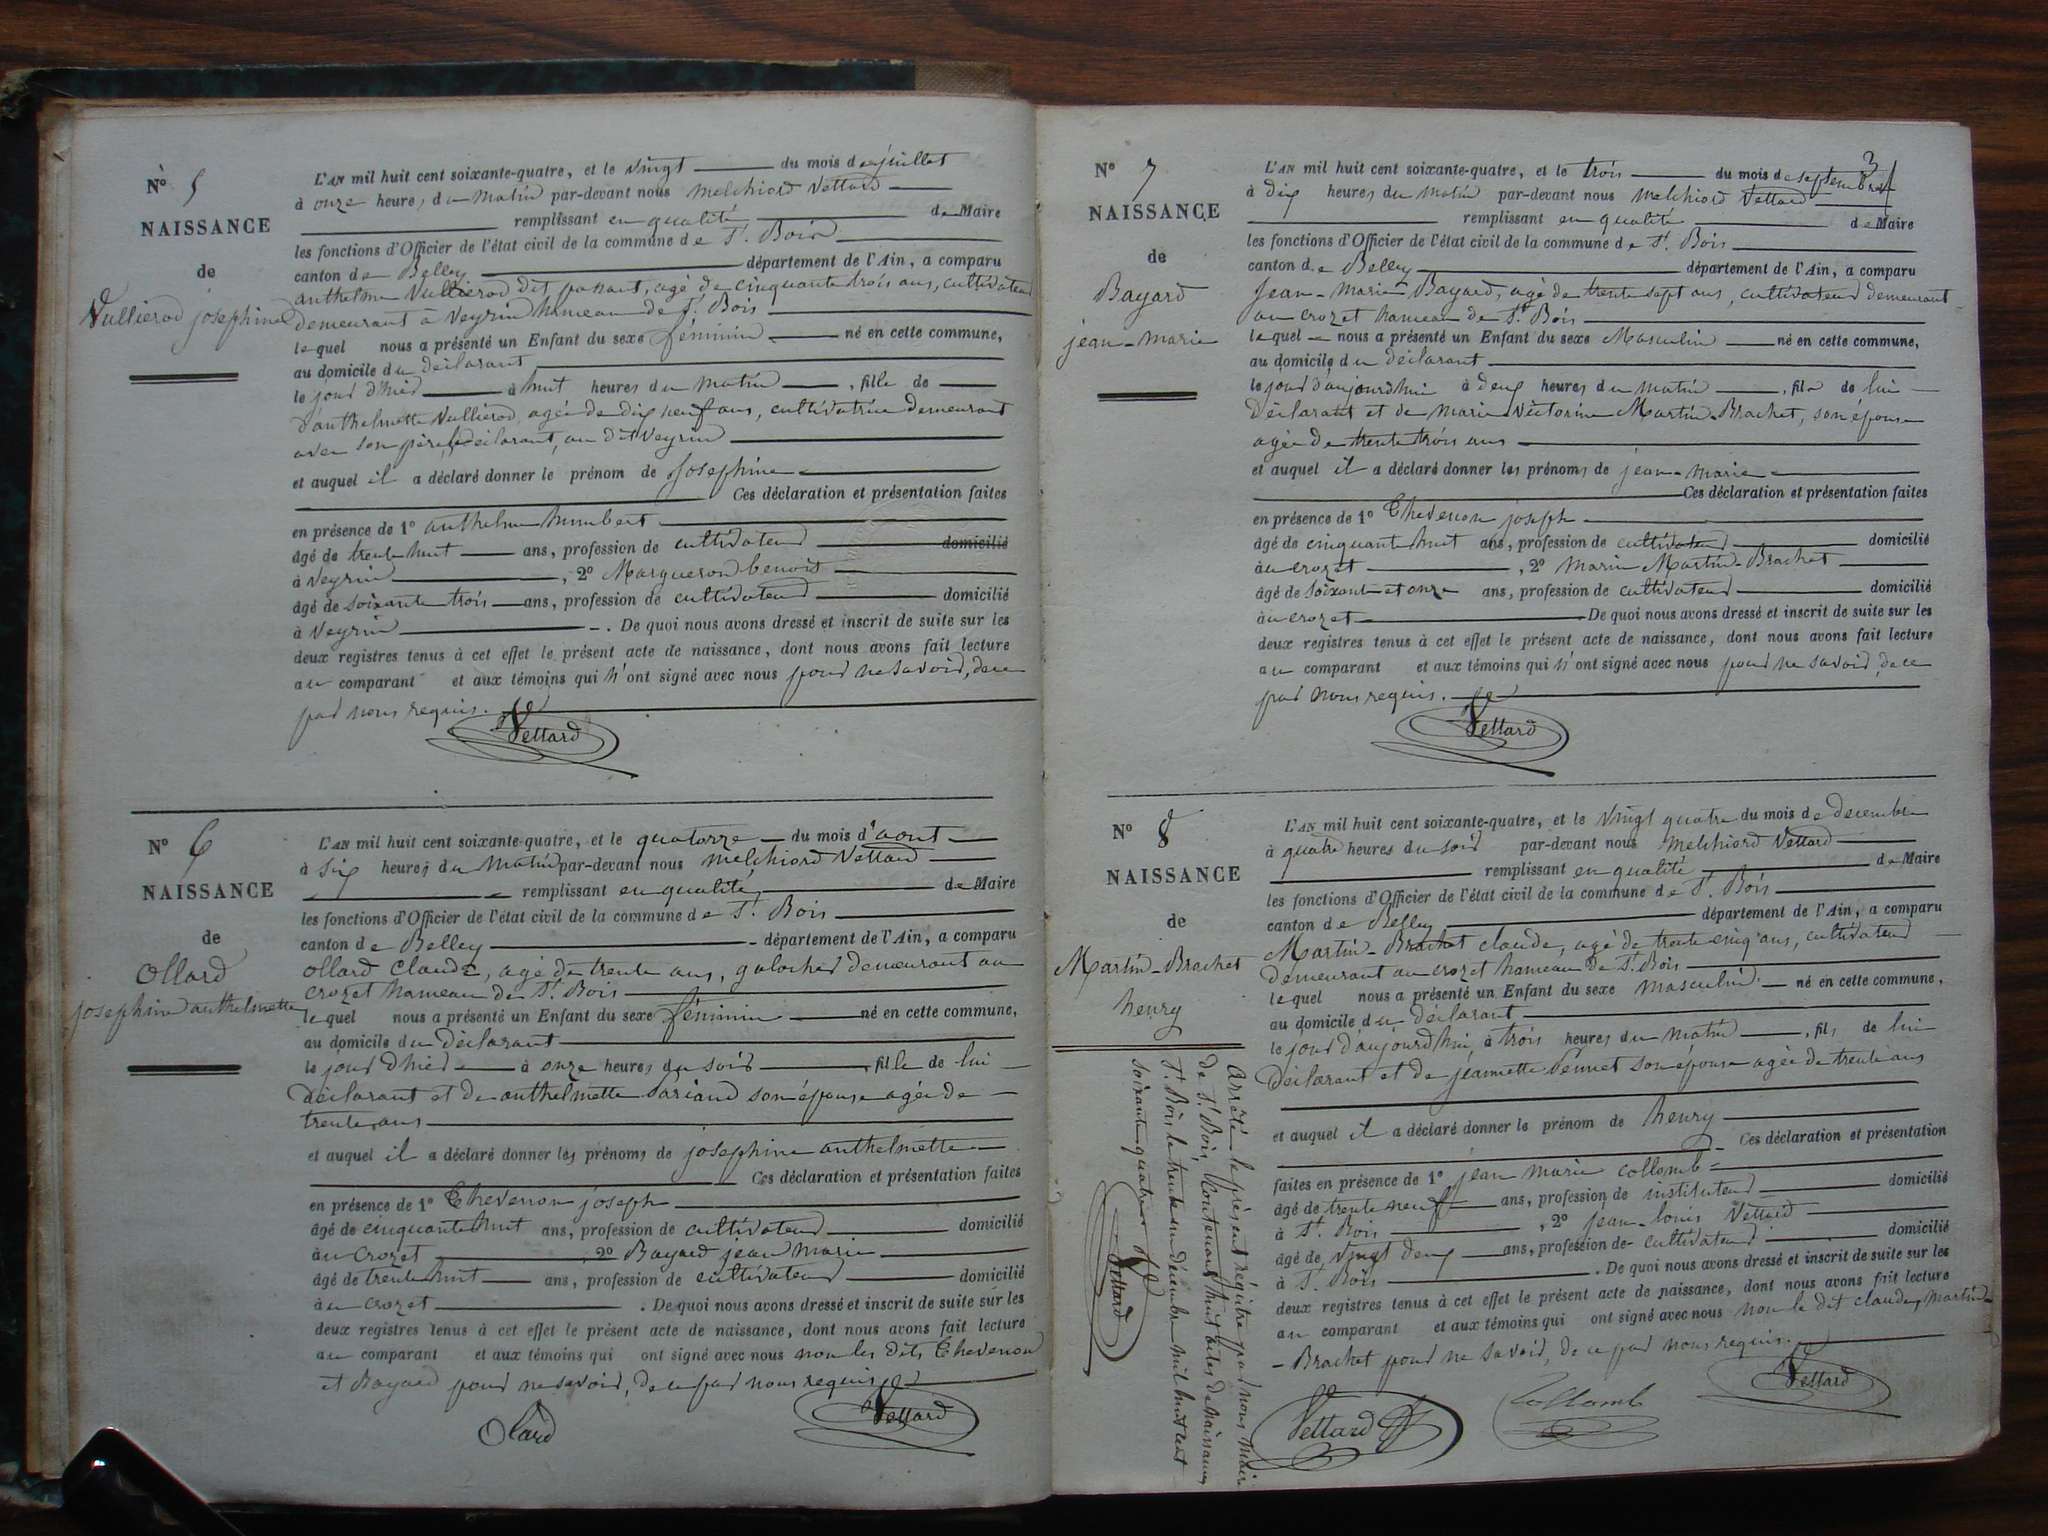 N° 5
NAISSANCE
de
Vullierod josephine
L'AN mil huit cent soixante-quatre, et le vingt du mois de juillet
à onze heures du matin par-devant nous Melchiord Vettard
remplissant en qualité de Maire
les fonctions d'Officier de l'état civil de la commune de St. Bois
canton de Belley département de l'Ain, a comparu
anthelme Vullierod dit passant, agé de cinquante trois ans, cultivateur
demeurant à Veyrin hameau de St. Bois
lequel nous a présenté un Enfant du sexe féminin né en cette commune,
au domicile du déclarant
le jour d'hier à huit heures du matin, fille de
d'anthelmette Vullierod, agée de dix neuf ans, cultivatrice demeurant
avec son père, le déclarant, au dit Veyrin
et auquel il a déclaré donner le prénom de Josephine
Ces déclaration et présentation faites
en présence de 1° anthelme humbert
âgé de trente huit ans, profession de cultivateur domicilié
à Veyrin, 2° Margueron benoit
âgé de soixante trois ans, profession de cultivateur domicilié
à Veyrin. De quoi nous avons dressé et inscrit de suite sur les
deux registres tenus à cet effet le présent acte de naissance, dont nous avons fait lecture
au comparant et aux témoins qui n'ont signé avec nous pour ne savoir, de ce
par nous requis.
Vettard
N° 6
NAISSANCE
de
Ollard
josephine anthelmette
L'AN mil huit cent soixante-quatre, et le quatorze du mois d'aout
à six heures du matin par-devant nous Melchiord Vettard
remplissant en qualité de Maire
les fonctions d'Officier de l'état civil de la commune de St. Bois
canton de Belley département de l'Ain, a comparu
Ollard Claude, agé de trente ans, galocher demeurant au
crozet hameau de St. Bois
lequel nous a présenté un Enfant du sexe féminin né en cette commune,
au domicile du déclarant
le jour d'hier à onze heures du soir, fille de lui
déclarant et de anthelmette Sariand son épouse agée de
trente ans
et auquel il a déclaré donner les prénoms de josephine anthelmette
Ces déclaration et présentation faites
en présence de 1° Thevenon joseph
âgé de cinquante huit ans, profession de cultivateur domicilié
au Crozet, 2° Bayard jean Marie
âgé de trente huit ans, profession de cultivateur domicilié
au crozet. De quoi nous avons dressé et inscrit de suite sur les
deux registres tenus à cet effet le présent acte de naissance, dont nous avons fait lecture
au comparant et aux témoins qui ont signé avec nous non les dits Thevenon
et Bayard pour ne savoir, de ce par nous requis
Olard
Vettard
3
N° 7
NAISSANCE
de
Bayard
jean-marie
L'AN mil huit cent soixante-quatre, et le trois du mois de septembre
à dix heures du matin par-devant nous Melchiord Vettard
remplissant en qualité de Maire
les fonctions d'Officier de l'état civil de la commune de St. Bois
canton de Belley département de l'Ain, a comparu
Jean-Marie Bayard, agé de trente sept ans, cultivateur demeurant
au crozet hameau de St. Bois
lequel nous a présenté un Enfant du sexe Masculin né en cette commune,
au domicile du déclarant
le jour d'aujourd'hui à deux heures du matin, fils de lui
déclarant et de Marie Victorine Martin-Brachet, son épouse
agée de trente trois ans
et auquel il a déclaré donner les prénoms de jean-marie
Ces déclaration et présentation faites
en présence de 1° Thevenon joseph
âgé de cinquante huit ans, profession de cultivateur domicilié
au crozet, 2° Marin Martin-Brachet
âgé de soixante et onze ans, profession de cultivateur domicilié
au crozet. De quoi nous avons dressé et inscrit de suite sur les
deux registres tenus à cet effet le présent acte de naissance, dont nous avons fait lecture
au comparant et aux témoins qui n'ont signé avec nous pour ne savoir, de ce
par nous requis.
Vettard
N° 8
NAISSANCE
de
Martin-Brachet
henry
L'AN mil huit cent soixante-quatre, et le vingt quatre du mois de decembre
à quatre heures du soir par-devant nous Melchiord Vettard
remplissant en qualité de Maire
les fonctions d'Officier de l'état civil de la commune de St. Bois
canton de Belley département de l'Ain, a comparu
Martin-Brachet claude, agé de trente cinq ans, cultivateur
demeurant au crozet hameau de St. Bois
lequel nous a présenté un Enfant du sexe masculin né en cette commune,
au domicile du déclarant
le jour d'aujourd'hui, à trois heures du matin, fils de lui
déclarant et de jeannette Pennet son épouse agée de trente ans
et auquel il a déclaré donner le prénom de henry
Ces déclaration et présentation
faites en présence de 1° jean marie collomb
âgé de trente neuf ans, profession de instituteur domicilié
à St. Bois, 2° jean-louis Vettard
âgé de vingt deux ans, profession de cultivateur domicilié
à St. Bois. De quoi nous avons dressé et inscrit de suite sur les
deux registres tenus à cet effet le présent acte de naissance, dont nous avons fait lecture
au comparant et aux témoins qui ont signé avec nous non le dit claude Martin
-Brachet pour ne savoir, de ce par nous requis.
Vettard
Collomb
Vettard
Arrêté le présent régistre par nous Maire
de St. Bois, Contenant huit actes de naissances
St. Bois le trente un decembre mil huit cent
soixante quatre
Vettard